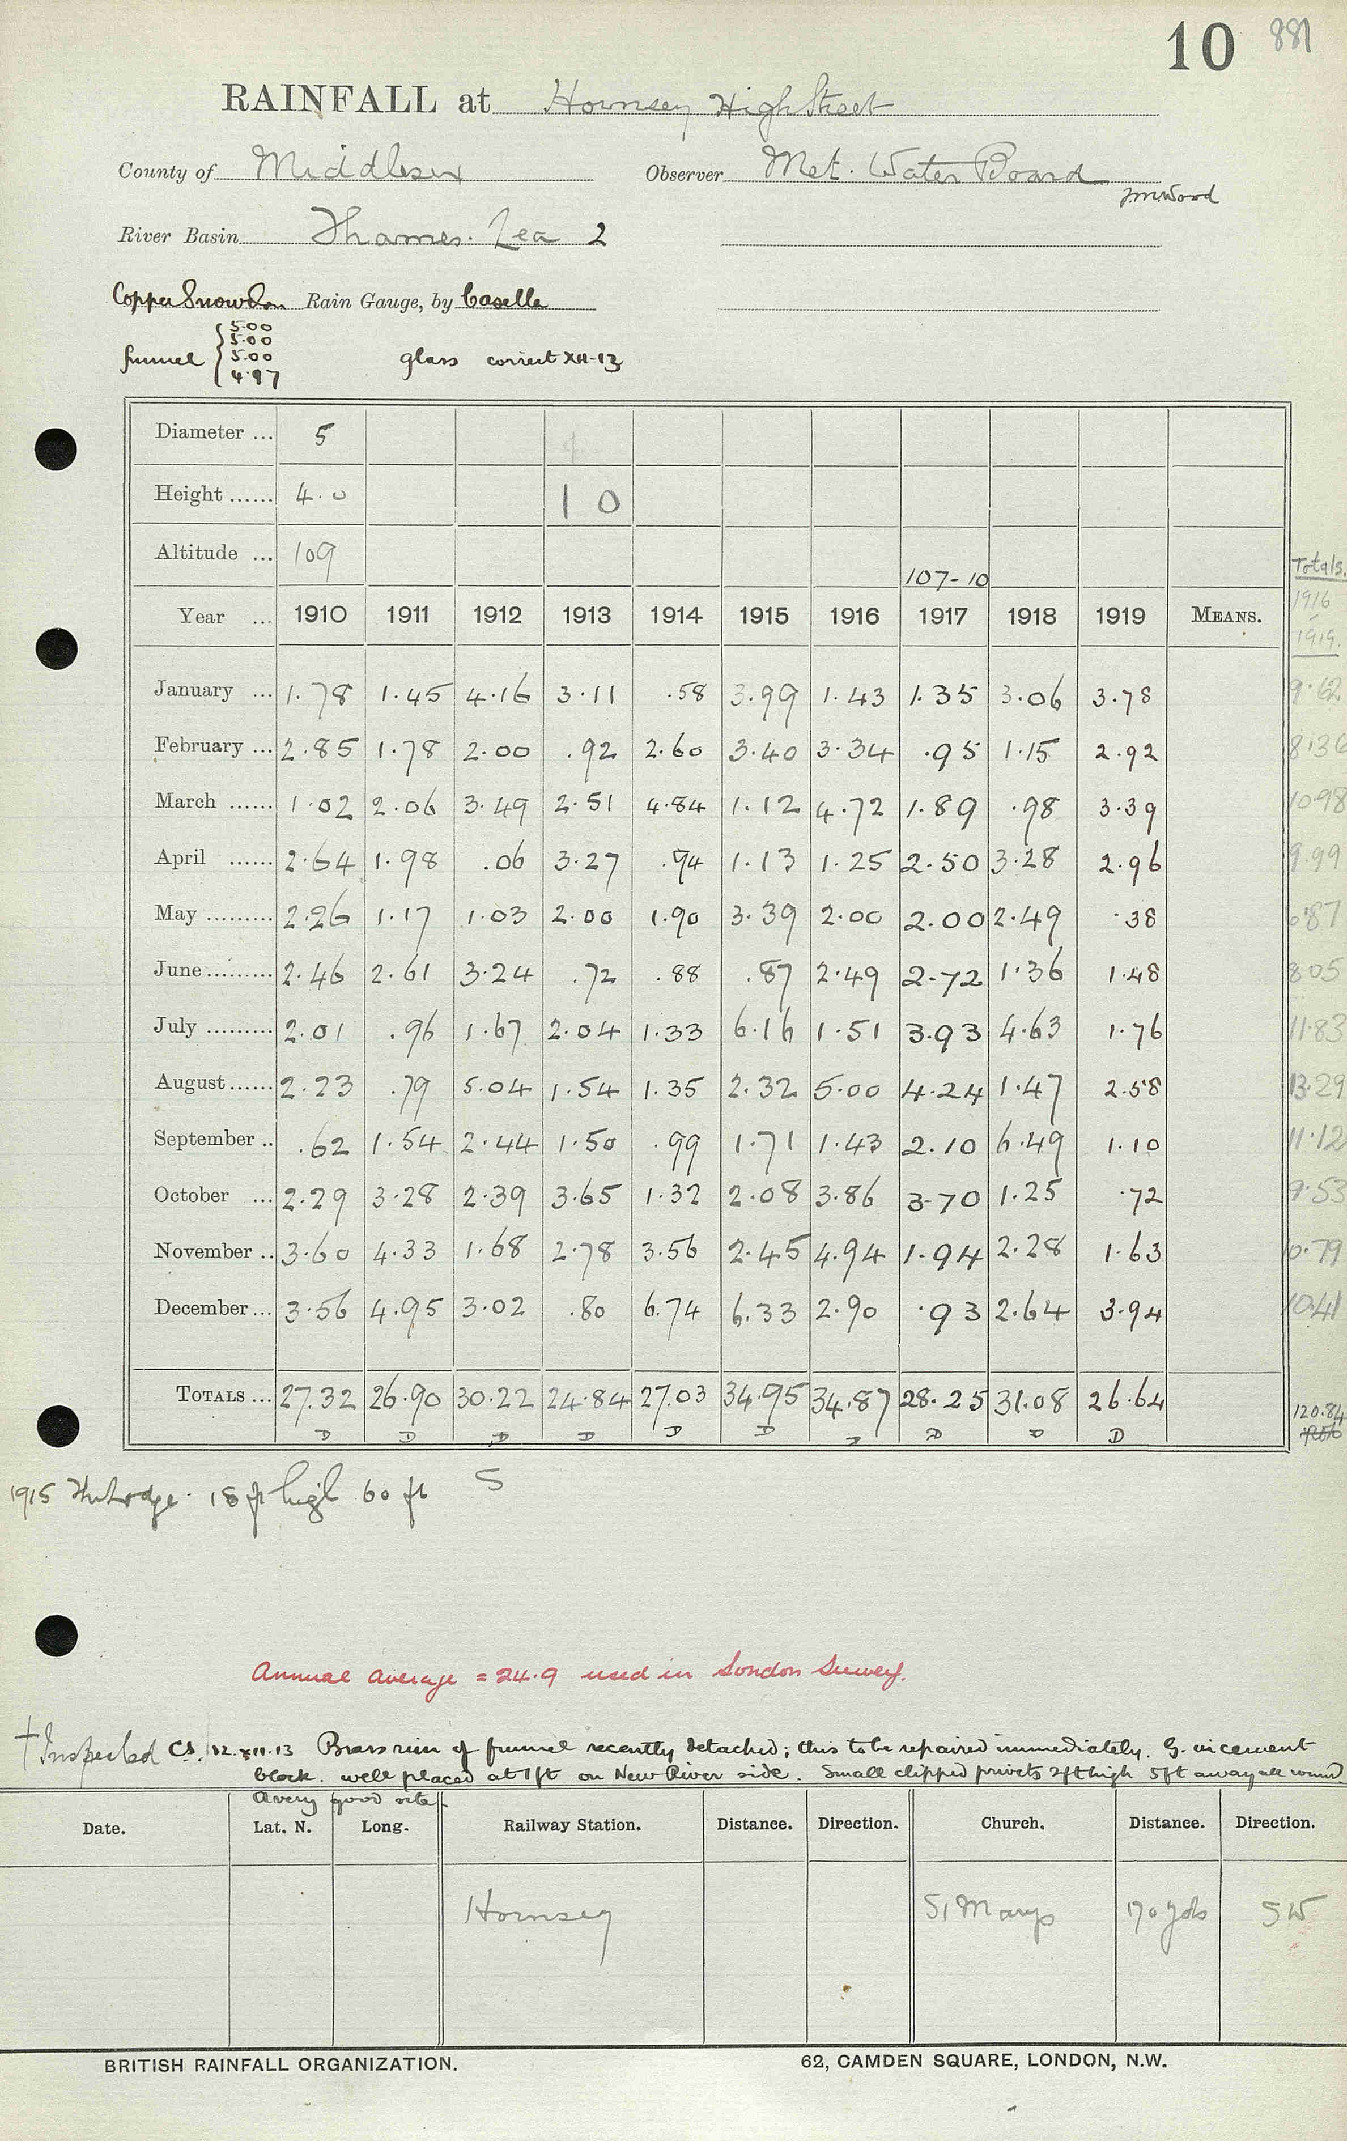 10 881
RAINFALL at Hornsey High Street
County of Middlesex Observer Met. Water Board
J M Wood
River Basin Thames. Lea 2
Copper Snowdon Rain Gauge, by Casella
funnel { 5.00 5.00 5.00 4.97 glass correct XII-13
Diameter ... 5
Height ...... 4.0 1 0
Altitude ... 109 107-10
Totals.
Year ... 1910 1911 1912 1913 1914 1915 1916 1917 1918 1919 MEANS. 1916 - 1919.
January ... 1.78 1.45 4.16 3.11 .58 3.99 1.43 1.35 3.06 3.78 9.62
February ... 2.85 1.78 2.00 .92 2.60 3.40 3.34 .95 1.15 2.92 8.36
March ...... 1.02 2.06 3.49 2.51 4.84 1.12 4.72 1.89 .98 3.39 10.98
April ...... 2.64 1.98 .06 3.27 .94 1.13 1.25 2.50 3.28 2.96 9.99
May ......... 2.26 1.17 1.03 2.00 1.90 3.39 2.00 2.00 2.49 .38 6.87
June ......... 2.46 2.61 3.24 .72 .88 .87 2.49 2.72 1.36 1.48 8.05
July ......... 2.01 .96 1.67 2.04 1.33 6.16 1.51 3.93 4.63 1.76 11.83
August ...... 2.23 .79 5.04 1.54 1.35 2.32 5.00 4.24 1.47 2.58 13.29
September .. .62 1.54 2.44 1.50 .99 1.71 1.43 2.10 6.49 1.10 11.12
October ... 2.29 3.28 2.39 3.65 1.32 2.08 3.86 3.70 1.25 .72 9.53
November .. 3.60 4.33 1.68 2.78 3.56 2.45 4.94 1.94 2.28 1.63 10.79
December ... 3.56 4.95 3.02 .80 6.74 6.33 2.90 .93 2.64 3.94 10.41
TOTALS ... 27.32 26.90 30.22 24.84 27.03 34.95 34.87 28.25 31.08 26.64 120.84
D D D D D D D D D D
1915 18 ft high 60 ft S
Annual average = 24.9 used in London Survey.
† Inspected CS. 12.XII.13 Brass rim of funnel recently detached; this to be repaired immediately. G. in cement
block. well placed at 1ft on New River side. Small clipped privets 2ft high 5ft away all round
A very good site
Date. Lat. N. Long. Railway Station. Distance. Direction. Church. Distance. Direction.
Hornsey St Marys 170 yds SW
BRITISH RAINFALL ORGANIZATION. 62, CAMDEN SQUARE, LONDON, N.W.